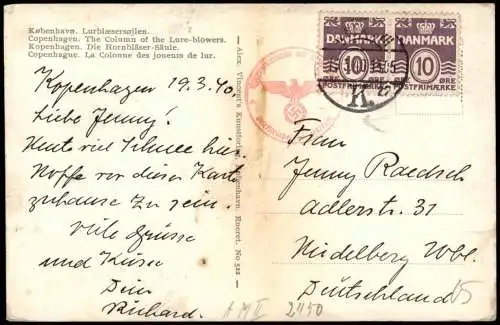 København. Lurblæsersøjlen.
Copenhagen. The Column of the Lure-blowers.
Kopenhagen. Die Hornbläser-Säule.
Copenhague. La Colonne des joueurs de lur.
Kopenhagen 19.3.40.
Liebe Jenny!
Heute viel Schnee hier.
Hoffe vor dieser Karte
zuhause zu sein.
Viele Grüsse
und Küsse
Dein
Richard.
Alex. Vincent's Kunstforlag, København. Eneret. No 512
DANMARK
10 ØRE
POSTFRIMÆRKE
DANMARK
10 ØRE
POSTFRIMÆRKE
K.
Frau
Jenny Raedsch
Adlerstr. 31
Heidelberg Wbl.
Deutschland